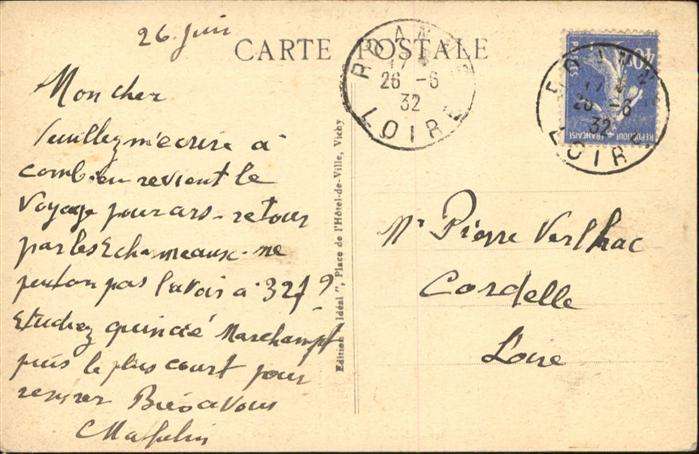 26 Juin
CARTE POSTALE
Mon cher
veuillez m'ecrire à
combien revient le
voyage pour ars - retour
par les Echarmeaux - ne
peut on pas l'avoir a 32f ?
Etudiez Marchampt
puis le plus court pour
rentrer Bien a vous
Edition "Idéal", Place de l'Hôtel-de-Ville, Vichy
ROANNE
17
26 - 6
32
LOIRE
ROANNE
17
26 - 6
32
LOIRE
40c
POSTES
REPUBLIQUE FRANÇAISE
Mr Pierre Verlhac
Cordelle
Loire